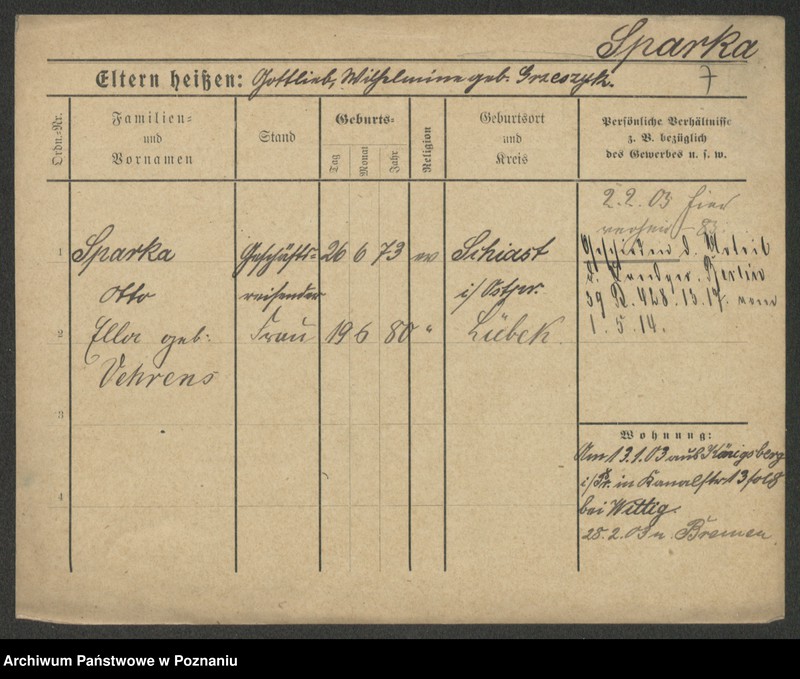 Sparka
7
Eltern heißen: Gottlieb, Wilhelmine geb. Grzeszyk.
Ordn.-Nr.
Familien-
und
Vornamen
Stand
Geburts-
Tag
Monat
Jahr
Religion
Geburtsort
und
Kreis
Persönliche Verhältnisse
z. B. bezüglich
des Gewerbes u. s. w.
2.2.03 hier
1 Sparka Geschäfts- 26 6 73 ev Schiast
Otto reisender i/Ostpr.
2 Ella geb: Frau 19 6 80 " Lübeck.
Vehrens
3
4
Geschieden d. Urteil
d. Landger. Berlin
39 R. 428. 13. 17. vom
1. 5. 14.
Wohnung:
Am 13.1.03 aus Königsberg
i/Pr. in Kanalstr 13
bei Wittig.
28.2.03 n. Bremen
Archiwum Państwowe w Poznaniu